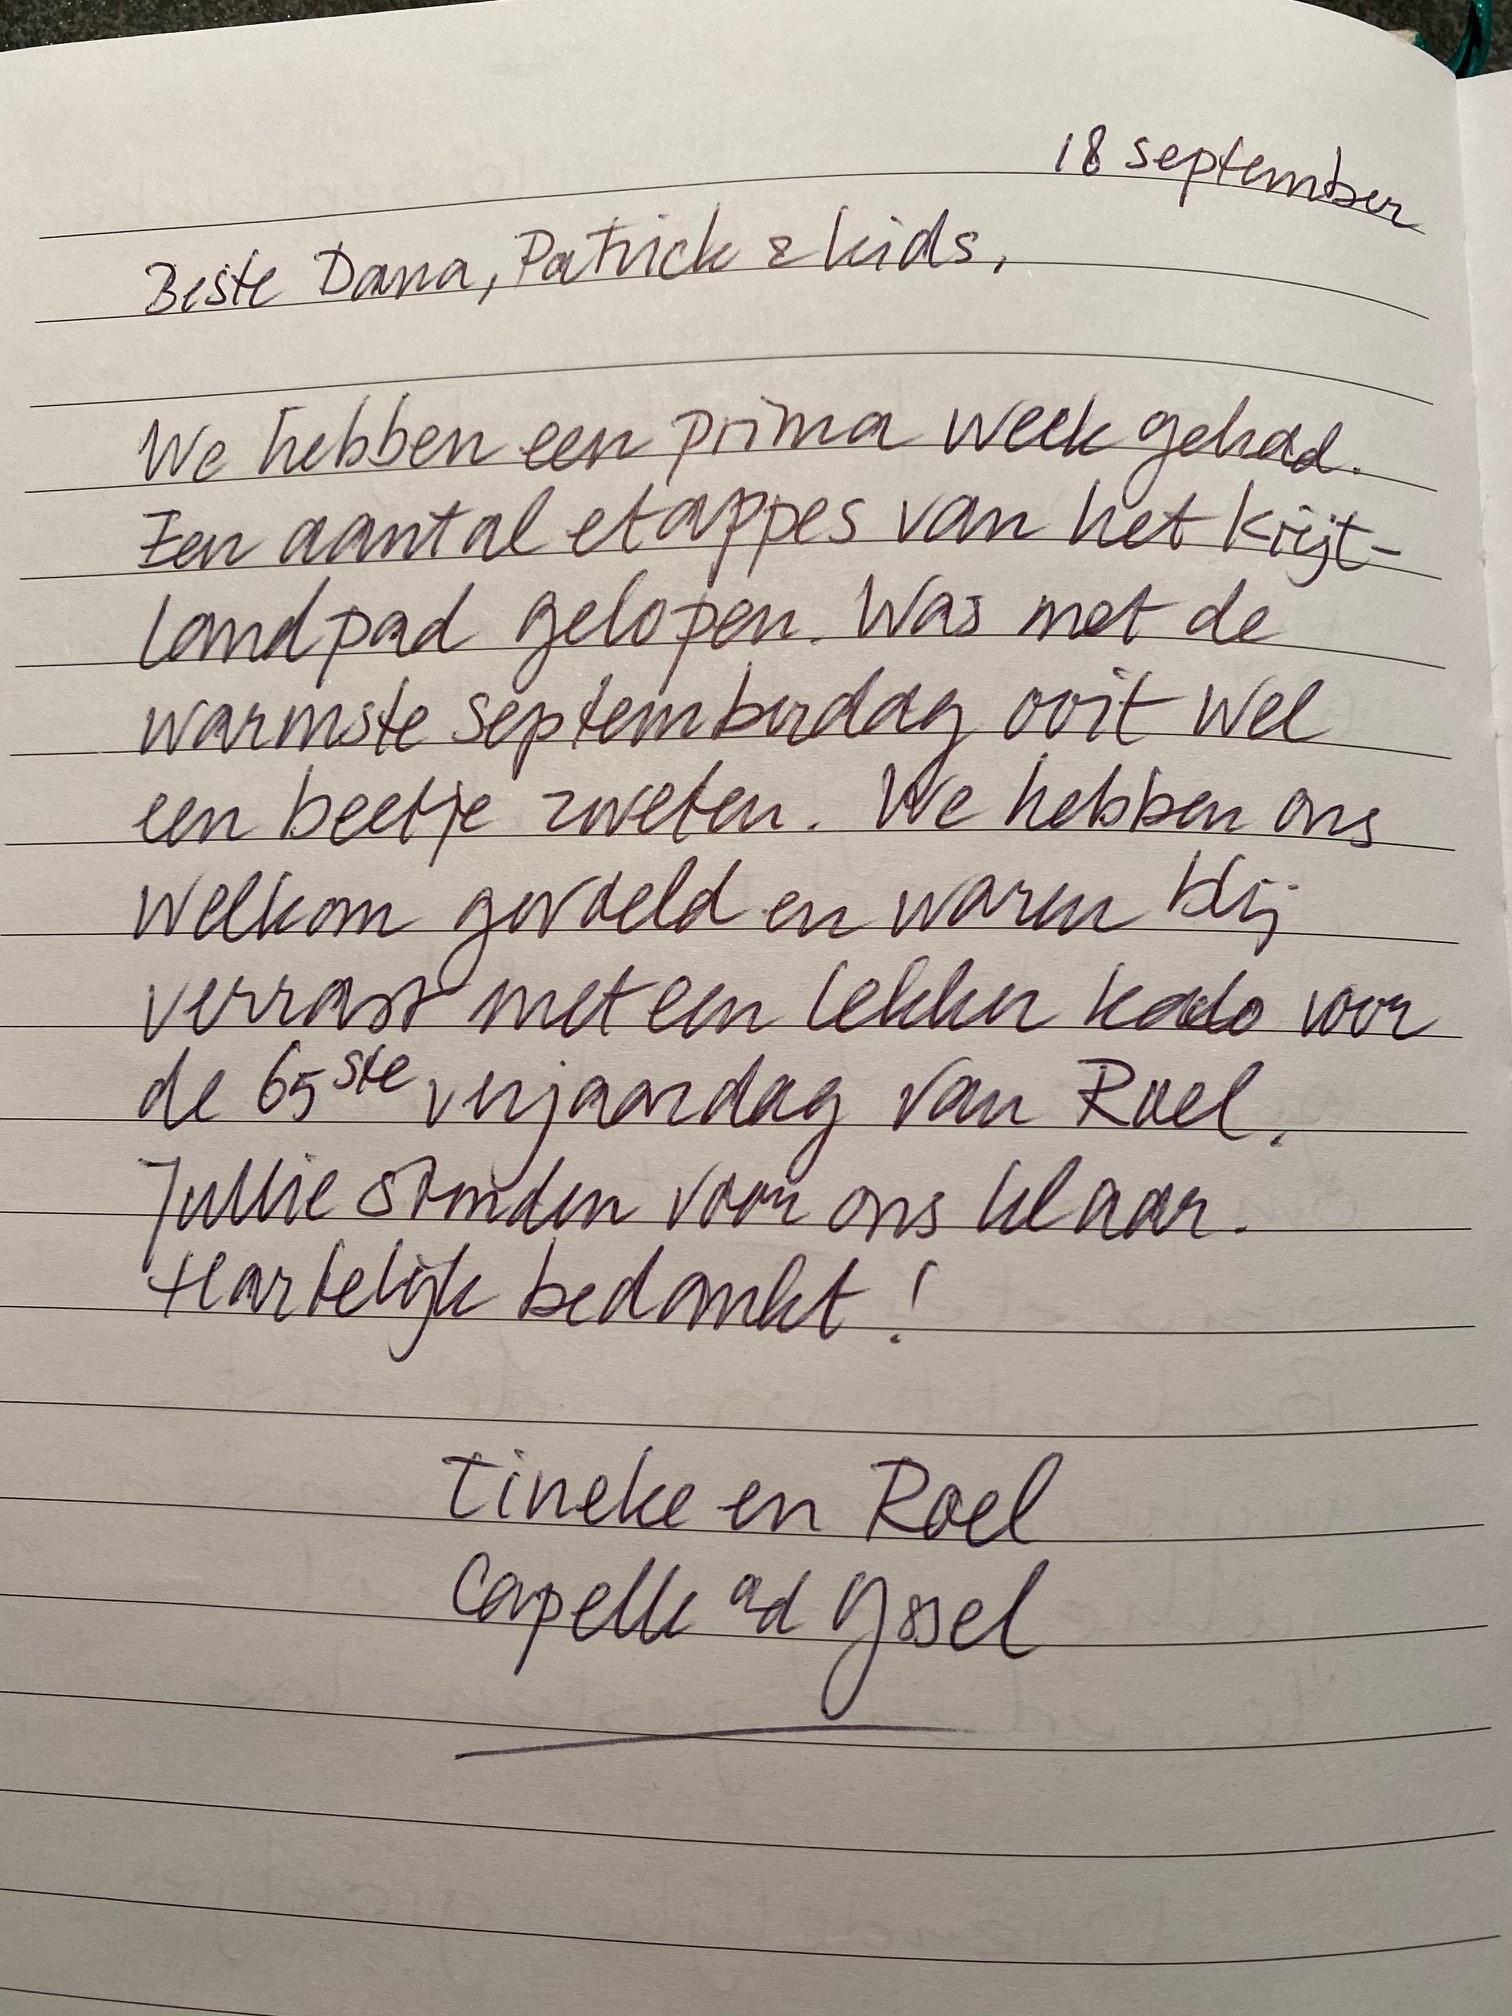 18 september
Beste Dana, Patrick & kids,
We hebben een prima week gehad.
Een aantal etappes van het Krijt-
landpad gelopen. Was met de
warmste septemberdag ooit wel
een beetje zweten. We hebben ons
welkom gevoeld en waren blij
verrast met een lekker kado voor
de 65ste verjaardag van Roel.
Jullie stonden voor ons klaar.
Hartelijk bedankt!
Tineke en Roel
Capelle ad IJssel